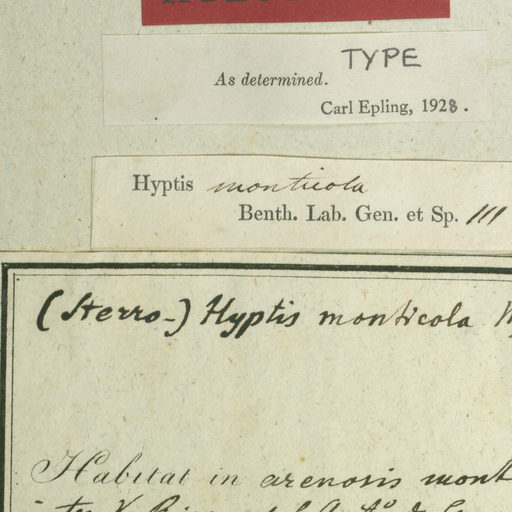 TYPE
As determined.
Carl Epling, 1928.
Hyptis monticola
Benth. Lab. Gen. et Sp. 111
(Sterro-) Hyptis monticola
Habitat in arenosis mont